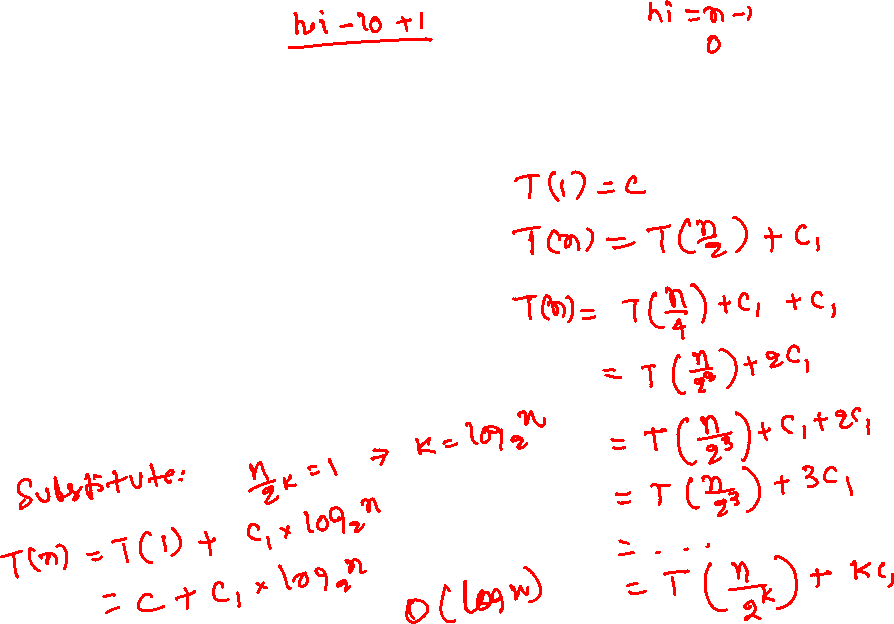 hi - lo + 1
hi = n - 1
0
T(1) = C
T(n) = T(n/2) + C₁
T(n) = T(n/4) + C₁ + C₁
= T(n/2²) + 2C₁
= T(n/2³) + C₁ + 2C₁
= T(n/2³) + 3C₁
= ...
= T(n/2ᵏ) + KC₁
Substitute: n/2ᴷ = 1 ⇒ K = log₂ⁿ
T(n) = T(1) + C₁ × log₂ⁿ
= C + C₁ × log₂ⁿ
O(log n)